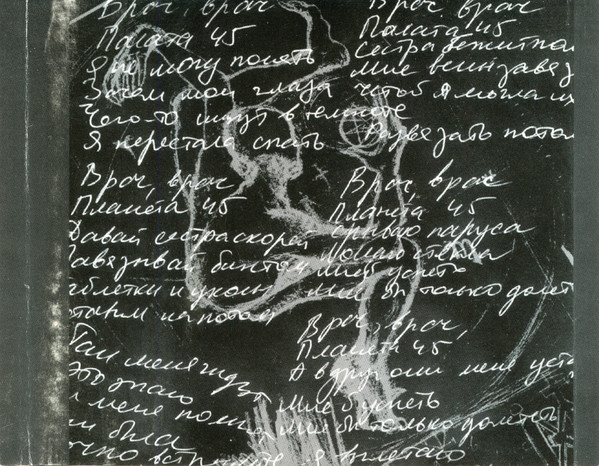 Врач, врач
Палата 45
Я не могу понять
Зачем мои глаза
Чего-то ищут в темноте
Я перестала спать
Врач, врач
Планета 45
Давай сестра скорей
Завязывай бинты
таблетки и укол
оставим на потом
Там меня ждут
Это знаю
и меня
я была
встретите
Врач, врач
Палата 45
сестра бежит
мне вены завяз
чтоб я могла их
Развязать потом
Врач, врач
Планета 45
срываю паруса
ломаю стекла
мне б успеть
мне бы только долететь
Врач, врач,
Планета 45
А вдруг они меня
Мне б успеть
Мне бы только долететь
я взлетаю